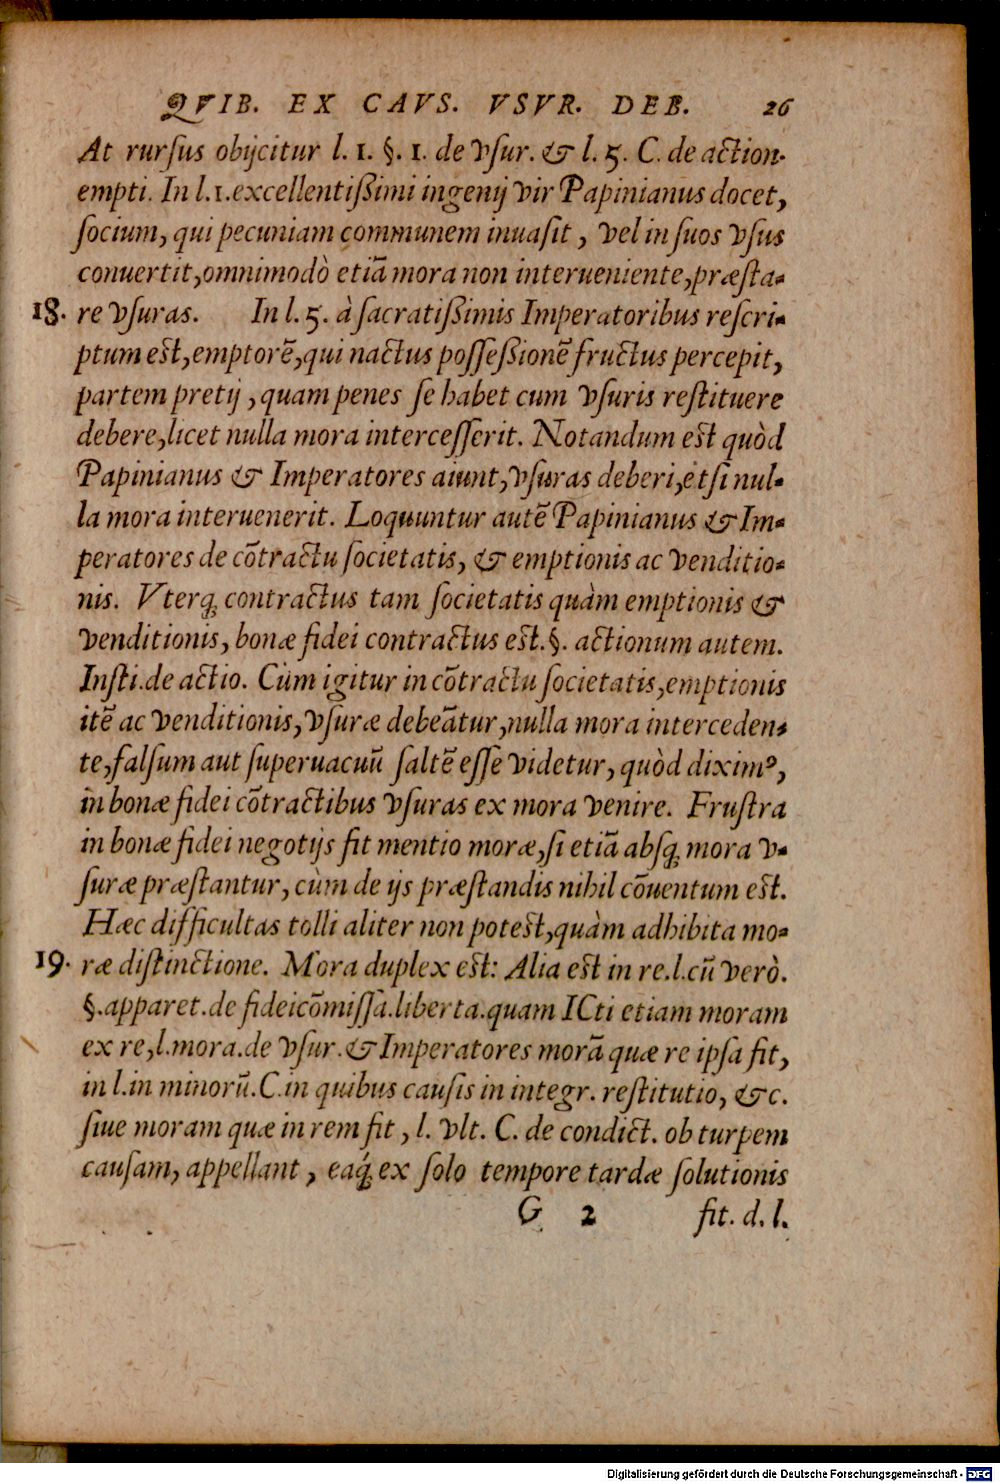 QVIB. EX CAVS. VSVR. DEB. 26
At rursus obijcitur l. 1. §. 1. de vsur. & l. 5. C. de action.
empti. In l. 1. excellentißimi ingenij vir Papinianus docet,
socium, qui pecuniam communem inuasit, vel in suos vsus
conuertit, omnimodò etiā mora non interueniente, præsta-
18. re vsuras. In l. 5. à sacratißimis Imperatoribus rescri-
ptum est, emptorē, qui nactus possessionē fructus percepit,
partem pretij, quam penes se habet cum vsuris restituere
debere, licet nulla mora intercesserit. Notandum est quòd
Papinianus & Imperatores aiunt, vsuras deberi, etsi nul-
la mora interuenerit. Loquuntur autē Papinianus & Im-
peratores de cōtractu societatis, & emptionis ac venditio-
nis. Vterq; contractus tam societatis quàm emptionis &
venditionis, bonæ fidei contractus est. §. actionum autem.
Insti. de actio. Cùm igitur in cōtractu societatis, emptionis
itē ac venditionis, vsuræ debeātur, nulla mora interceden-
te, falsum aut superuacuū saltē esse videtur, quòd diximꝰ,
in bonæ fidei cōtractibus vsuras ex mora venire. Frustra
in bonæ fidei negotijs fit mentio moræ, si etiā absq; mora v-
suræ præstantur, cùm de ijs præstandis nihil cōuentum est.
Hæc difficultas tolli aliter non potest, quàm adhibita mo-
19. ræ distinctione. Mora duplex est: Alia est in re. l. cū verò.
§. apparet. de fideicōmissa. liberta. quam ICti etiam moram
ex re, l. mora. de vsur. & Imperatores morā quæ re ipsa fit,
in l. in minorū. C. in quibus causis in integr. restitutio, &c.
siue moram quæ in rem fit, l. vlt. C. de condict. ob turpem
causam, appellant, eaq́; ex solo tempore tardæ solutionis
G 2 fit. d. l.
Digitalisierung gefördert durch die Deutsche Forschungsgemeinschaft - DFG